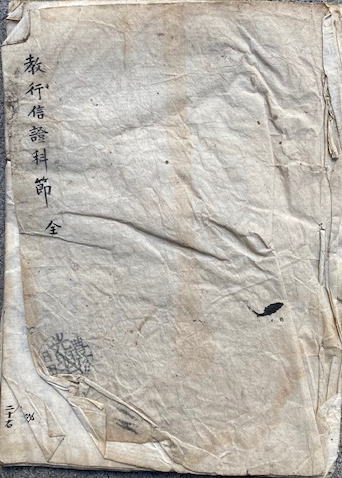 教行信證科節 全
二十石